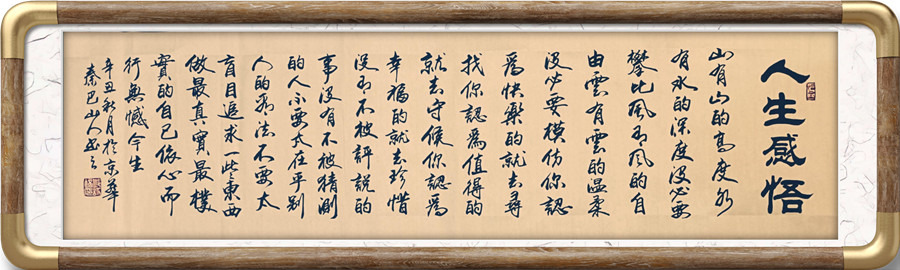 人生感悟
山有山的高度水
有水的深度没必要
攀比风有风的自
由雲有雲的温柔
没必要模仿你認
為快樂的就去尋
找你認為值得的
就去守候你認為
幸福的就去珍惜
没有不被評說的
事没有不被猜測
的人不要太在乎别
人的看法不要太
盲目追求些東西
做最真實最樸
實的自己依心而
行無憾今生
辛丑秋月於京華
秦巴山人书之